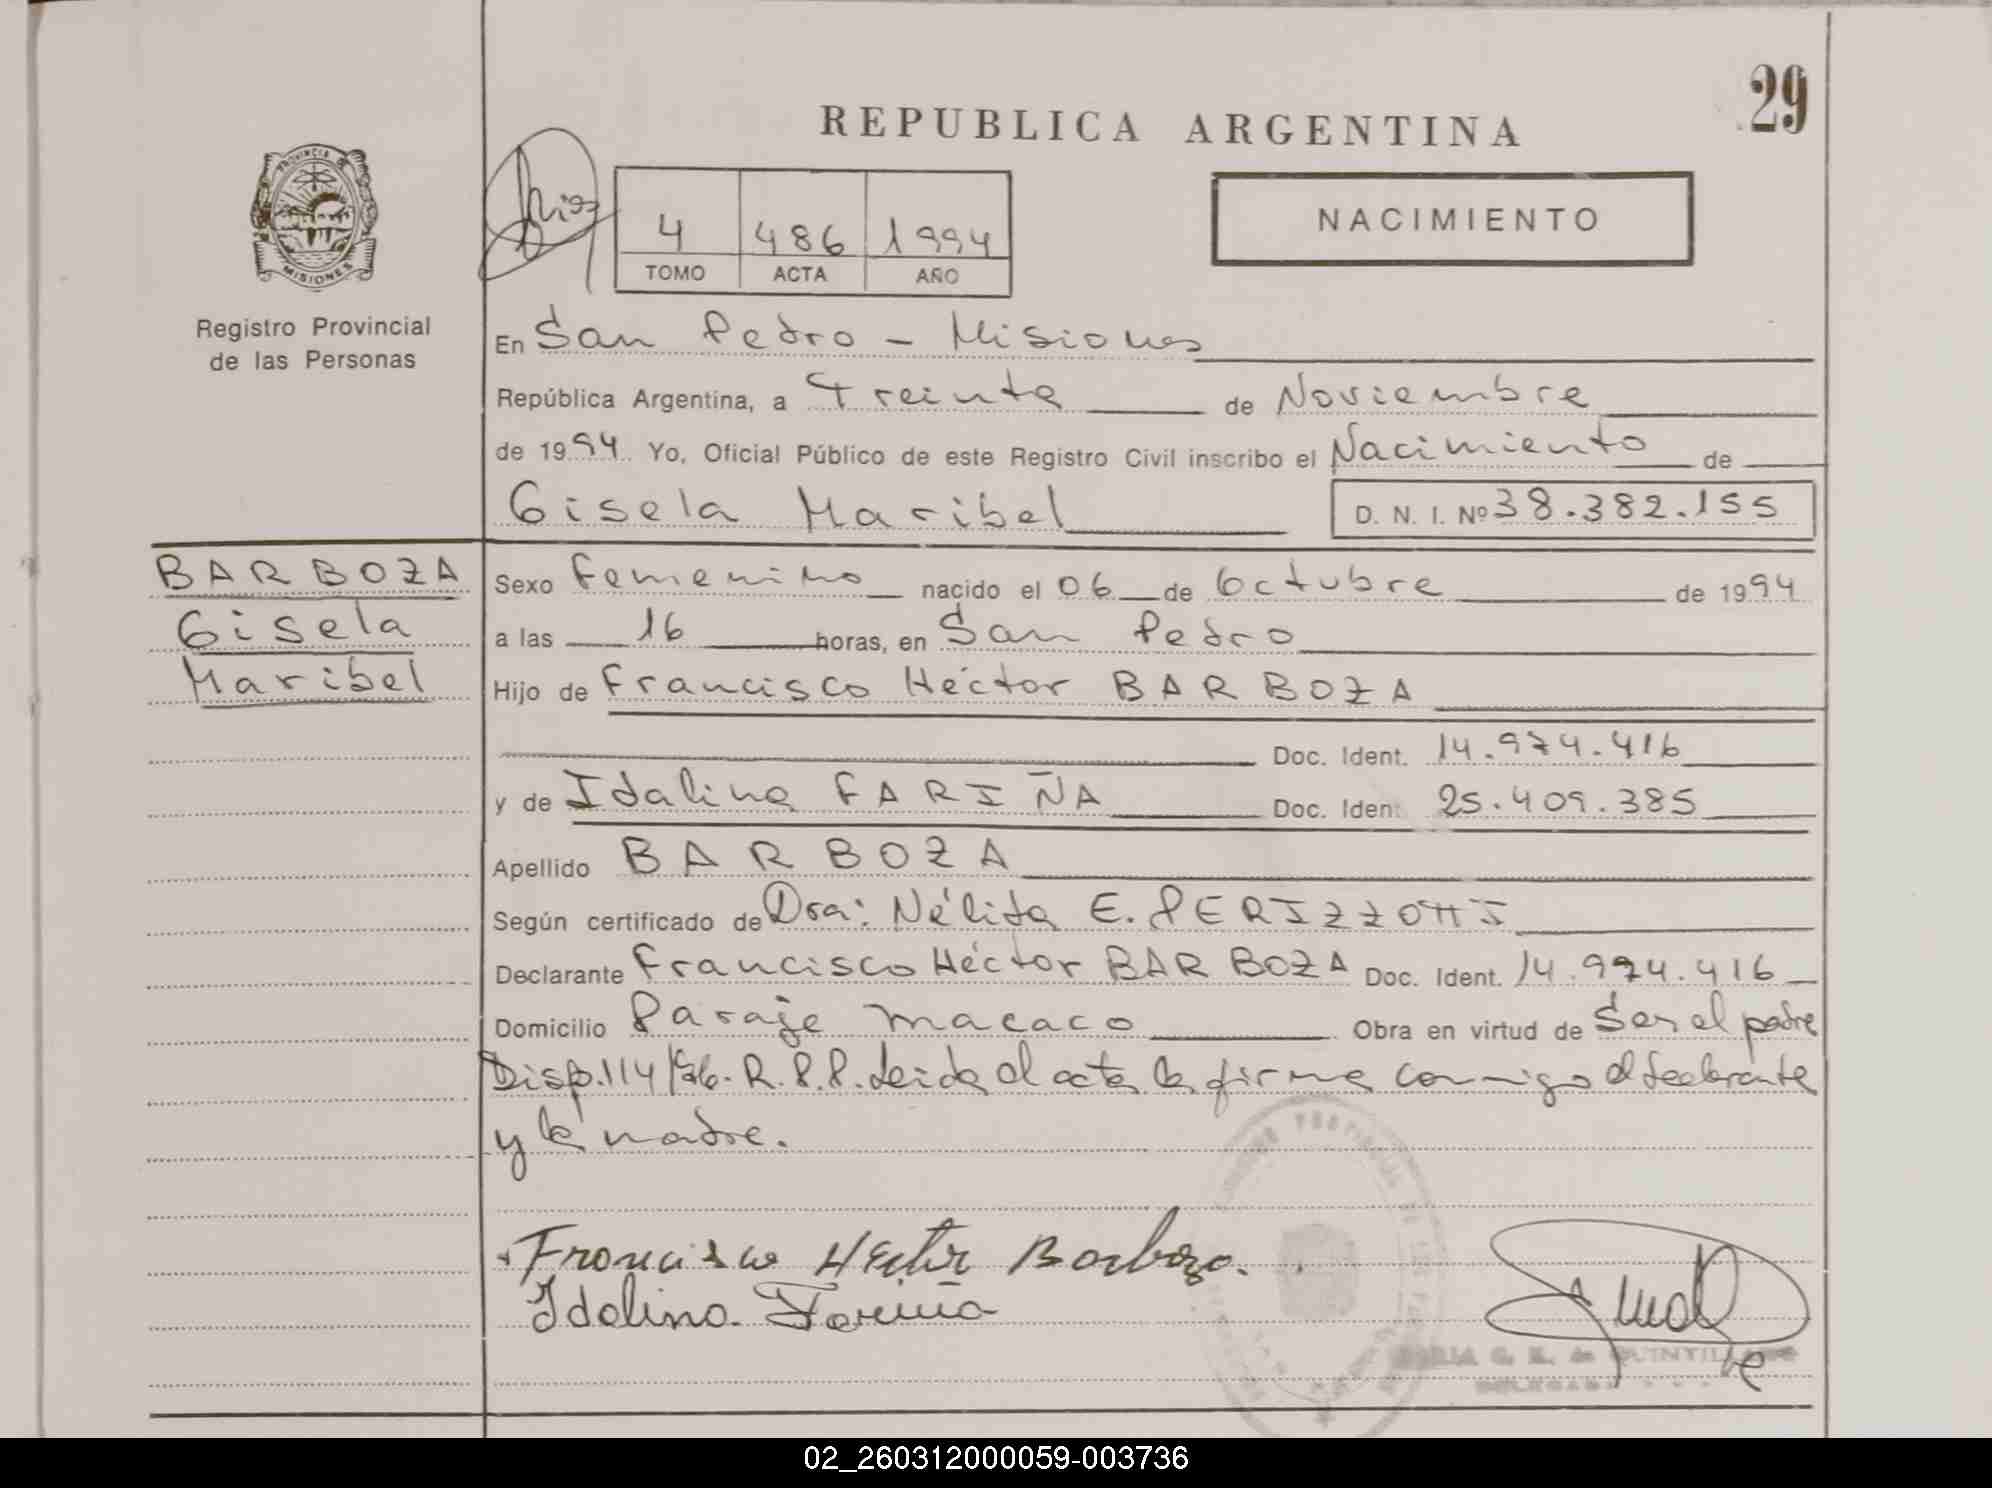 29
REPUBLICA ARGENTINA
PROVINCIA DE
MISIONES
Registro Provincial
de las Personas
4 486 1994
TOMO ACTA AÑO
NACIMIENTO
En San Pedro - Misiones
República Argentina, a Treinta de Noviembre
de 1994 Yo, Oficial Público de este Registro Civil inscribo el Nacimiento de
Gisela Maribel D. N. I. Nº 38.382.155
BARBOZA
Gisela
Maribel
Sexo Femenino nacido el 06 de Octubre de 1994
a las 16 horas, en San Pedro
Hijo de Francisco Héctor BARBOZA
Doc. Ident. 14.974.416
y de Idalina FARIÑA Doc. Ident. 25.409.385
Apellido BARBOZA
Según certificado de Dra: Nélida E. PERIZZOTTI
Declarante Francisco Héctor BARBOZA Doc. Ident. 14.974.416
Domicilio Paraje Macaco Obra en virtud de Ser el padre
Disp. 114/86. R.P.P. Leida el acta la firma conmigo el declarante
y la madre.
Francisco Hector Barboza.
Idalina Fariña
MARIA G. K. de QUINTILLANO
DELEGADA
02_260312000059-003736